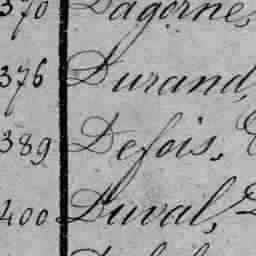 370 Dagorne,
376 Durand,
389 Defois,
400 Duval,